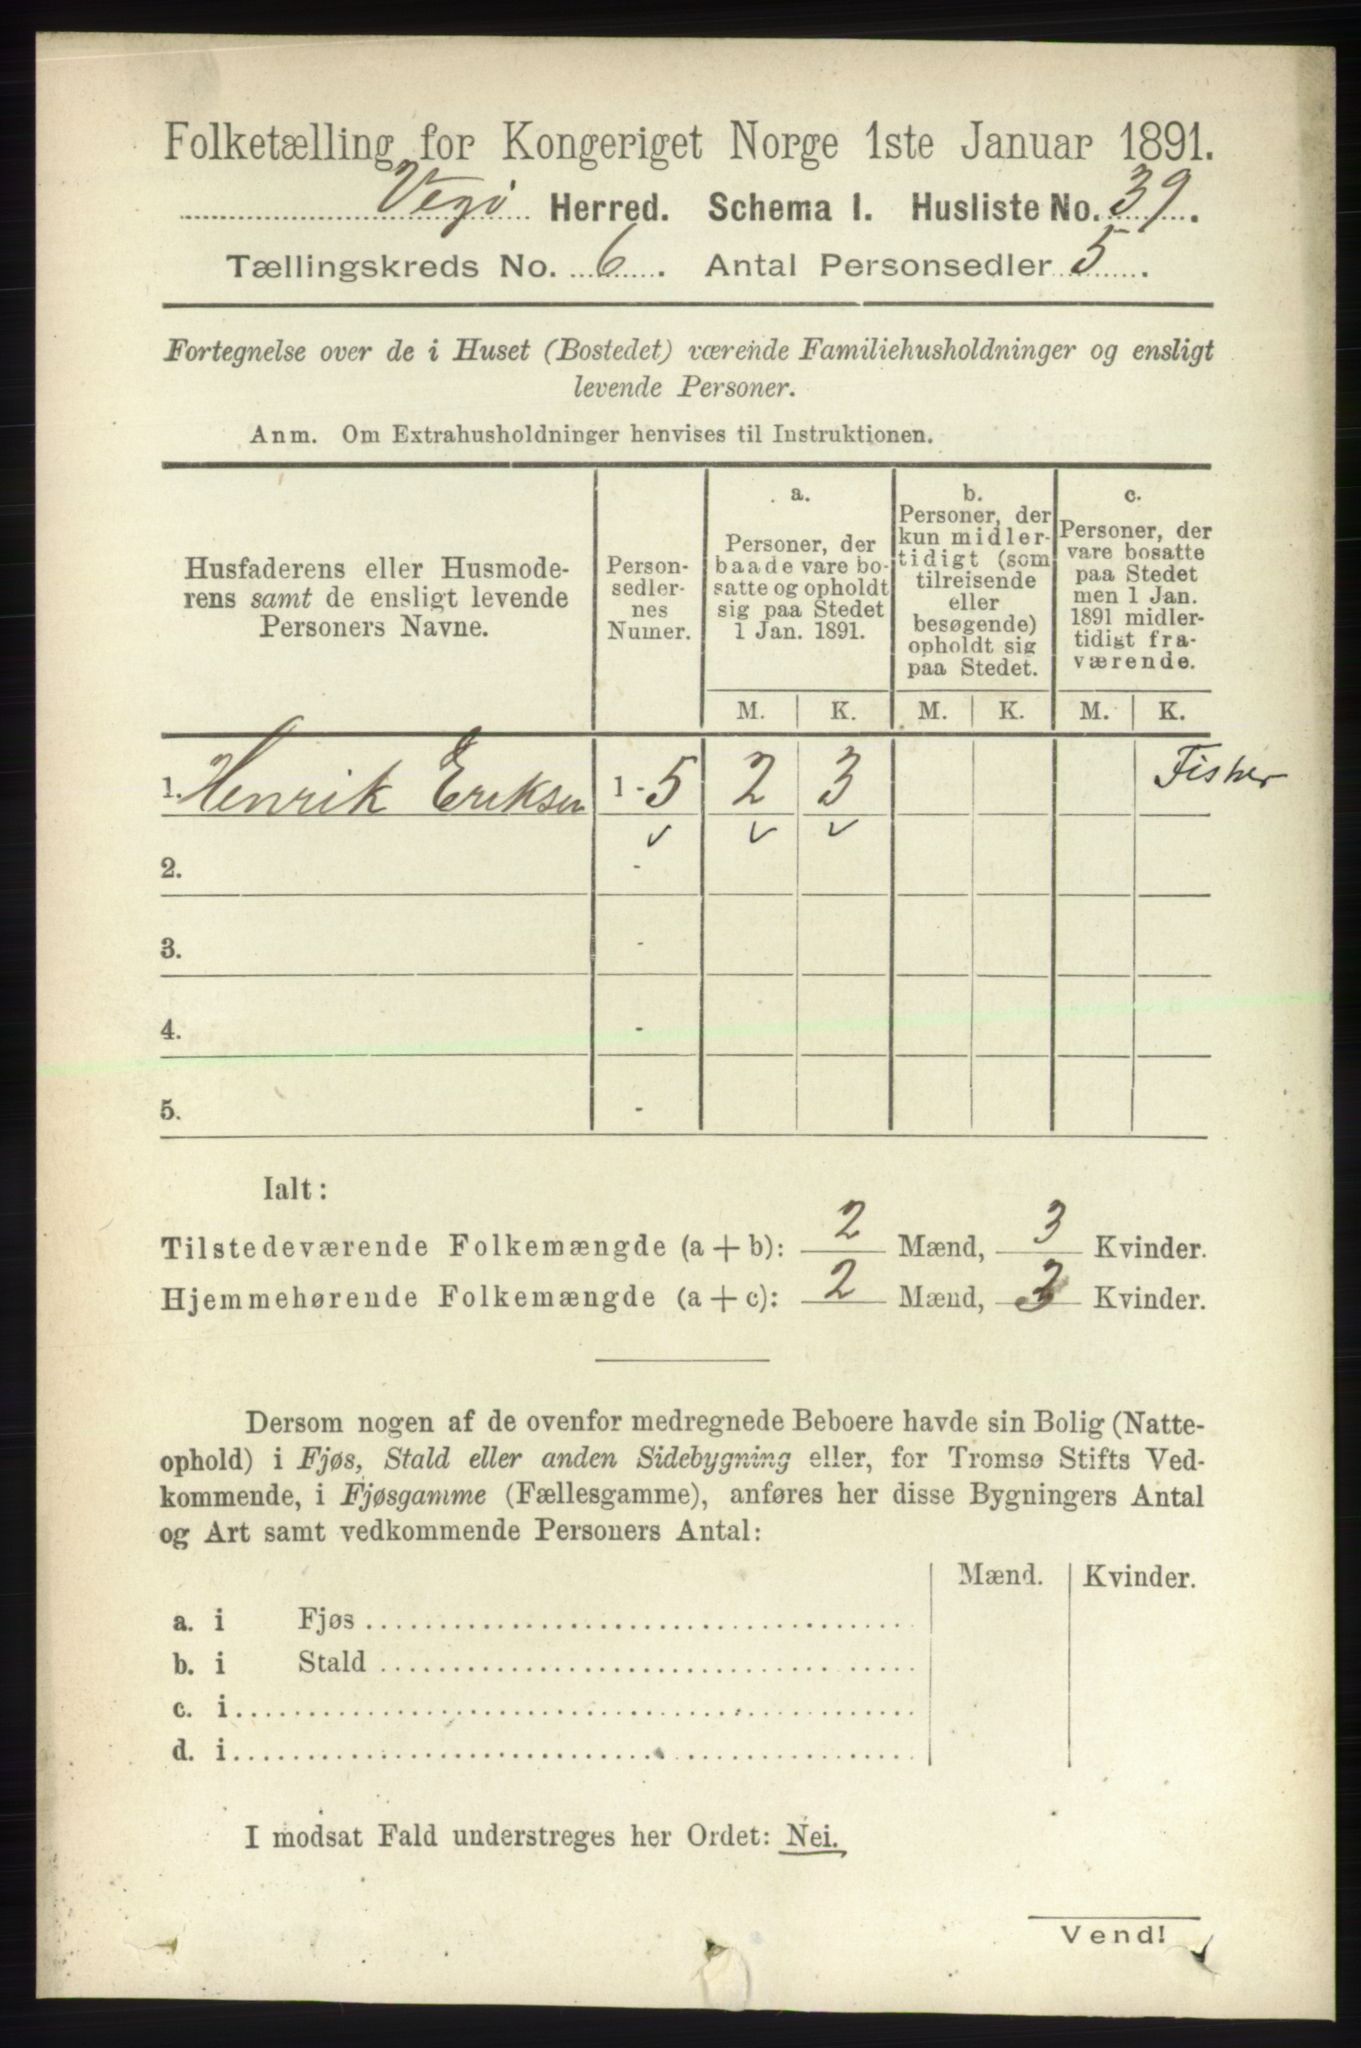 Folketælling for Kongeriget Norge 1ste Januar 1891.
Vegø Herred. Schema I. Husliste No. 39.
Tællingskreds No. 6. Antal Personsedler 5.
Fortegnelse over de i Huset (Bostedet) værende Familiehusholdninger og ensligt
levende Personer.
Anm. Om Extrahusholdninger henvises til Instruktionen.
Husfaderens eller Husmode-
rens samt de ensligt levende
Personers Navne.
Person-
sedler-
nes
Numer.
a.
Personer, der
baade vare bo-
satte og opholdt
sig paa Stedet
1 Jan. 1891.
b.
Personer, der
kun midler-
tidigt (som
tilreisende
eller
besøgende)
opholdt sig
paa Stedet.
c.
Personer, der
vare bosatte
paa Stedet
men 1 Jan.
1891 midler-
tidigt fra-
værende.
M. K. M. K. M. K.
1. Henrik Eriksen 1 - 5 2 3 Fisker
✓ ✓ ✓
2. -
3. -
4. -
5. -
Ialt:
Tilstedeværende Folkemængde (a + b): 2 Mænd, 3 Kvinder.
Hjemmehørende Folkemængde (a + c): 2 Mænd, 3 Kvinder.
Dersom nogen af de ovenfor medregnede Beboere havde sin Bolig (Natte-
ophold) i Fjøs, Stald eller anden Sidebygning eller, for Tromsø Stifts Ved-
kommende, i Fjøsgamme (Fællesgamme), anføres her disse Bygningers Antal
og Art samt vedkommende Personers Antal:
Mænd. Kvinder.
a. i Fjøs
b. i Stald
c. i
d. i
I modsat Fald understreges her Ordet: Nei.
Vend!